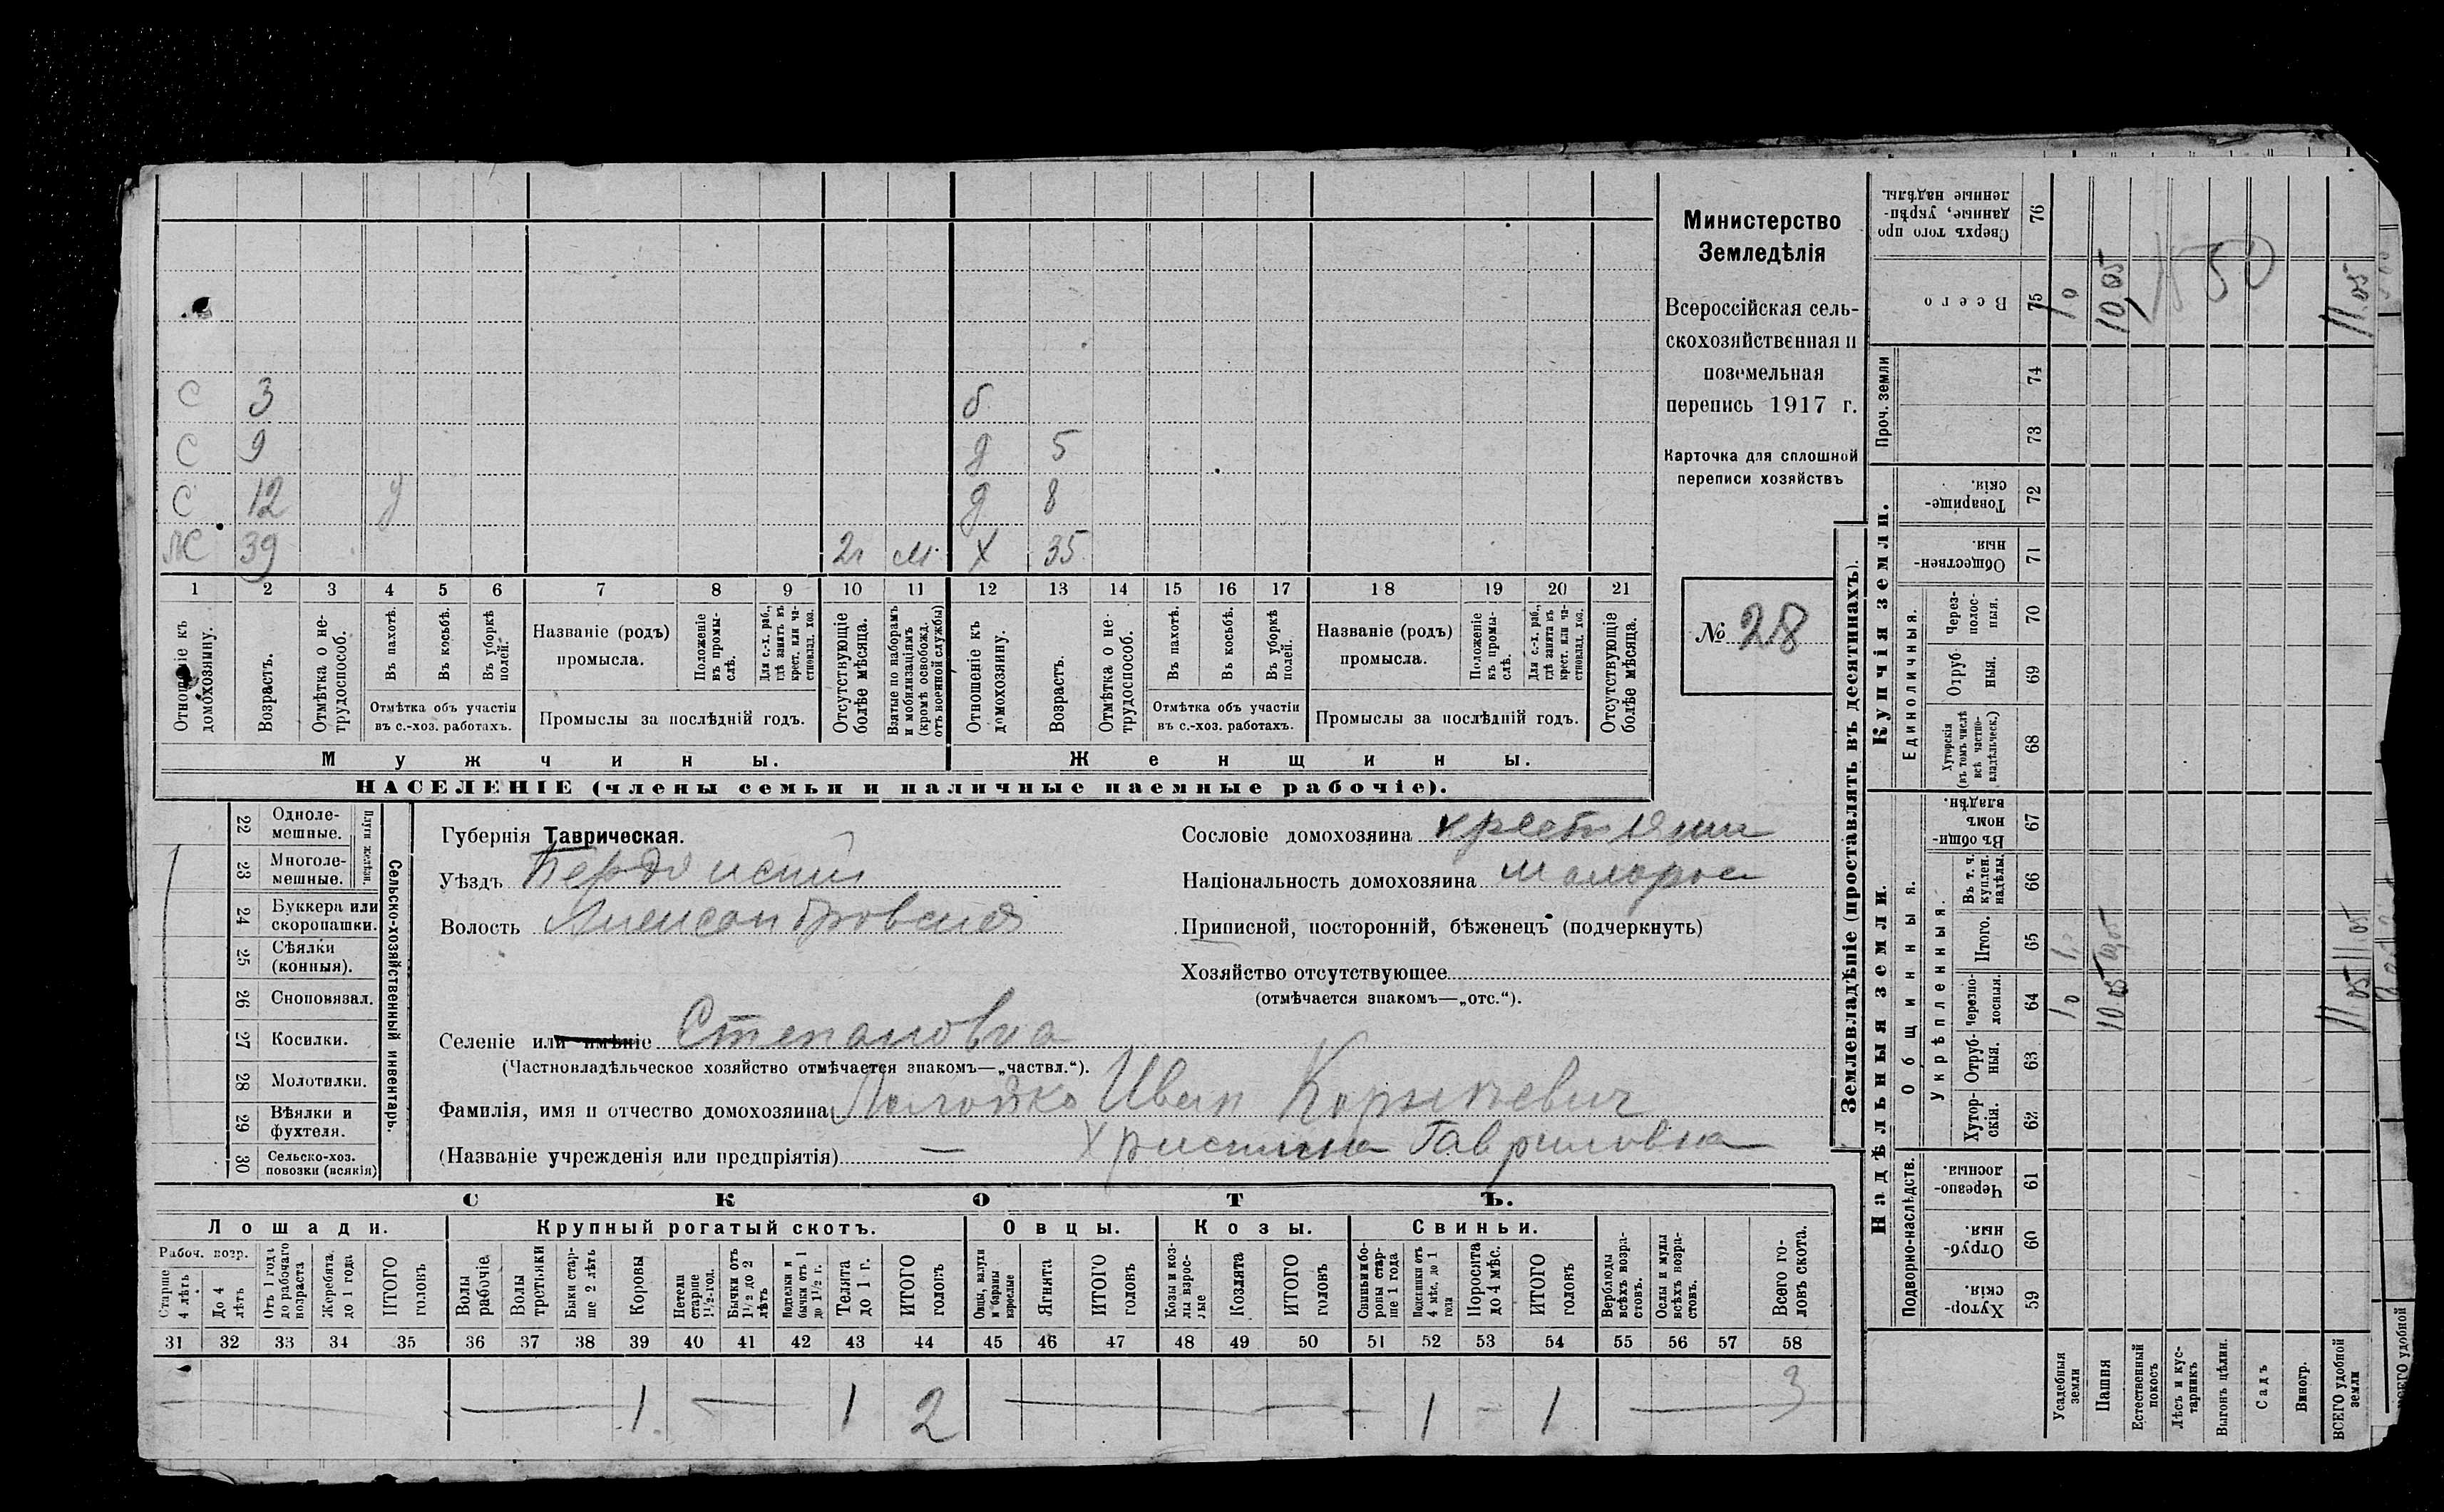 Министерство
Земледѣлія
Всероссійская сель-
скохозяйственная и
поземельная
перепись 1917 г.
Карточка для сплошной
переписи хозяйствъ
№ 28
С 3 б
С 9 д 5
С 12 у д 8
39 2г м. Х 35
1 2 3 4 5 6 7 8 9 10 11 12 13 14 15 16 17 18 19 20 21
Отношеніе къ домохозяину.
Возрастъ.
Отмѣтка о не-трудоспособ.
Въ пахотѣ.
Въ косьбѣ.
Въ уборкѣ полей.
Отмѣтка объ участіи
въ с.-хоз. работахъ.
Названіе (родъ)
промысла.
Положеніе въ промы-слѣ.
Для с.-х. раб., гдѣ занятъ въ крест. или ча-стновлад. хоз.
Промыслы за послѣдній годъ.
Отсутствующіе болѣе мѣсяца.
Взятые по наборамъ и мобилизаціямъ (кромѣ освобожд. отъ военной службы)
Отношеніе къ домохозяину.
Возрастъ.
Отмѣтка о не-трудоспособ.
Въ пахотѣ.
Въ косьбѣ.
Въ уборкѣ полей.
Отмѣтка объ участіи
въ с.-хоз. работахъ.
Названіе (родъ)
промысла.
Положеніе въ промы-слѣ.
Для с.-х. раб., гдѣ занята въ крест. или ча-стновлад. хоз.
Промыслы за послѣдній годъ.
Отсутствующіе болѣе мѣсяца.
Мужчины.
Женщины.
НАСЕЛЕНІЕ (члены семьи и наличные наемные рабочіе).
Сельско-хозяйственный инвентарь.
Плуги желѣзн.
22 Одноле-мешные.
23 Многоле-мешные.
24 Буккера или скоропашки.
25 Сѣялки (конныя).
26 Сноповязал.
27 Косилки.
28 Молотилки.
29 Вѣялки и фухтеля.
30 Сельско-хоз. повозки (всякія)
Губернія Таврическая.
Уѣздъ Бердянскій
Волость Александровская
Селеніе или имѣніе Степановка
(Частновладѣльческое хозяйство отмѣчается знакомъ—„частвл.“).
Фамилія, имя и отчество домохозяина Иван Корнѣевич
(Названіе учрежденія или предпріятія) — Христина Гавриловна
Сословіе домохозяина крестьянин
Національность домохозяина малорос
Приписной, посторонній, бѣженецъ (подчеркнуть)
Хозяйство отсутствующее
(отмѣчается знакомъ—„отс.“).
СКОТЪ.
Лошади. Крупный рогатый скотъ. Овцы. Козы. Свиньи.
Рабоч. возр.
Старше 4 лѣтъ
До 4 лѣтъ
Отъ 1 года до рабочаго возраста
Жеребята до 1 года
ИТОГО головъ
Волы рабочіе.
Волы третьяки
Быки стар-ше 2 лѣтъ
Коровы
Нетели старше 1½-год.
Бычки отъ 1½ до 2 лѣтъ
Подтелки и бычки отъ 1 до 1½ г.
Телята до 1 г.
ИТОГО головъ
Овцы, валухи и бараны взрослые
Ягнята
ИТОГО головъ
Козы и коз-лы взрос-лые
Козлята
ИТОГО головъ
Свиньи и бо-ровы стар-ше 1 года
Подсвинки отъ 4 мѣс. до 1 года
Поросята до 4 мѣс.
ИТОГО головъ
Верблюды всѣхъ возра-стовъ.
Ослы и мулы всѣхъ возра-стовъ.
Всего го-ловъ скота.
31 32 33 34 35 36 37 38 39 40 41 42 43 44 45 46 47 48 49 50 51 52 53 54 55 56 57 58
— — 1 — 1 2 — — 1 - 1 — 3
Землевладѣніе (проставлять въ десятинахъ).
Купчія земли.
Надѣльныя земли.
Проч. земли
Единоличныя.
Общинныя.
Укрѣпленныя.
Подворно-наслѣдств.
76 Сверхъ того про данные, укрѣп-ленные надѣлы.
75 Всего
74
73
72 Товарище-скія.
71 Обществен-ныя.
70 Через-полос-ныя.
69 Отруб-ныя.
68 Хуторскія (въ томъ числѣ всѣ частно-владѣльческ.)
67 Въ общи-номъ владѣн.
66 Въ т. ч. куплен. надѣлы.
65 Итого.
64 Черезпо-лосныя.
63 Отруб-ныя.
62 Хутор-скія.
61 Черезпо-лосныя.
60 Отруб-ныя.
59 Хутор-скія.
Усадебныя земли
Пашня
Естественный покосъ
Лѣсъ и кус-тарникъ
Выгонъ цѣлин.
Садъ
Виногр.
ВСЕГО удобной земли
10 10 05 50 11 05
10 10 05 11 05
11 05
ВСЕГО удобной